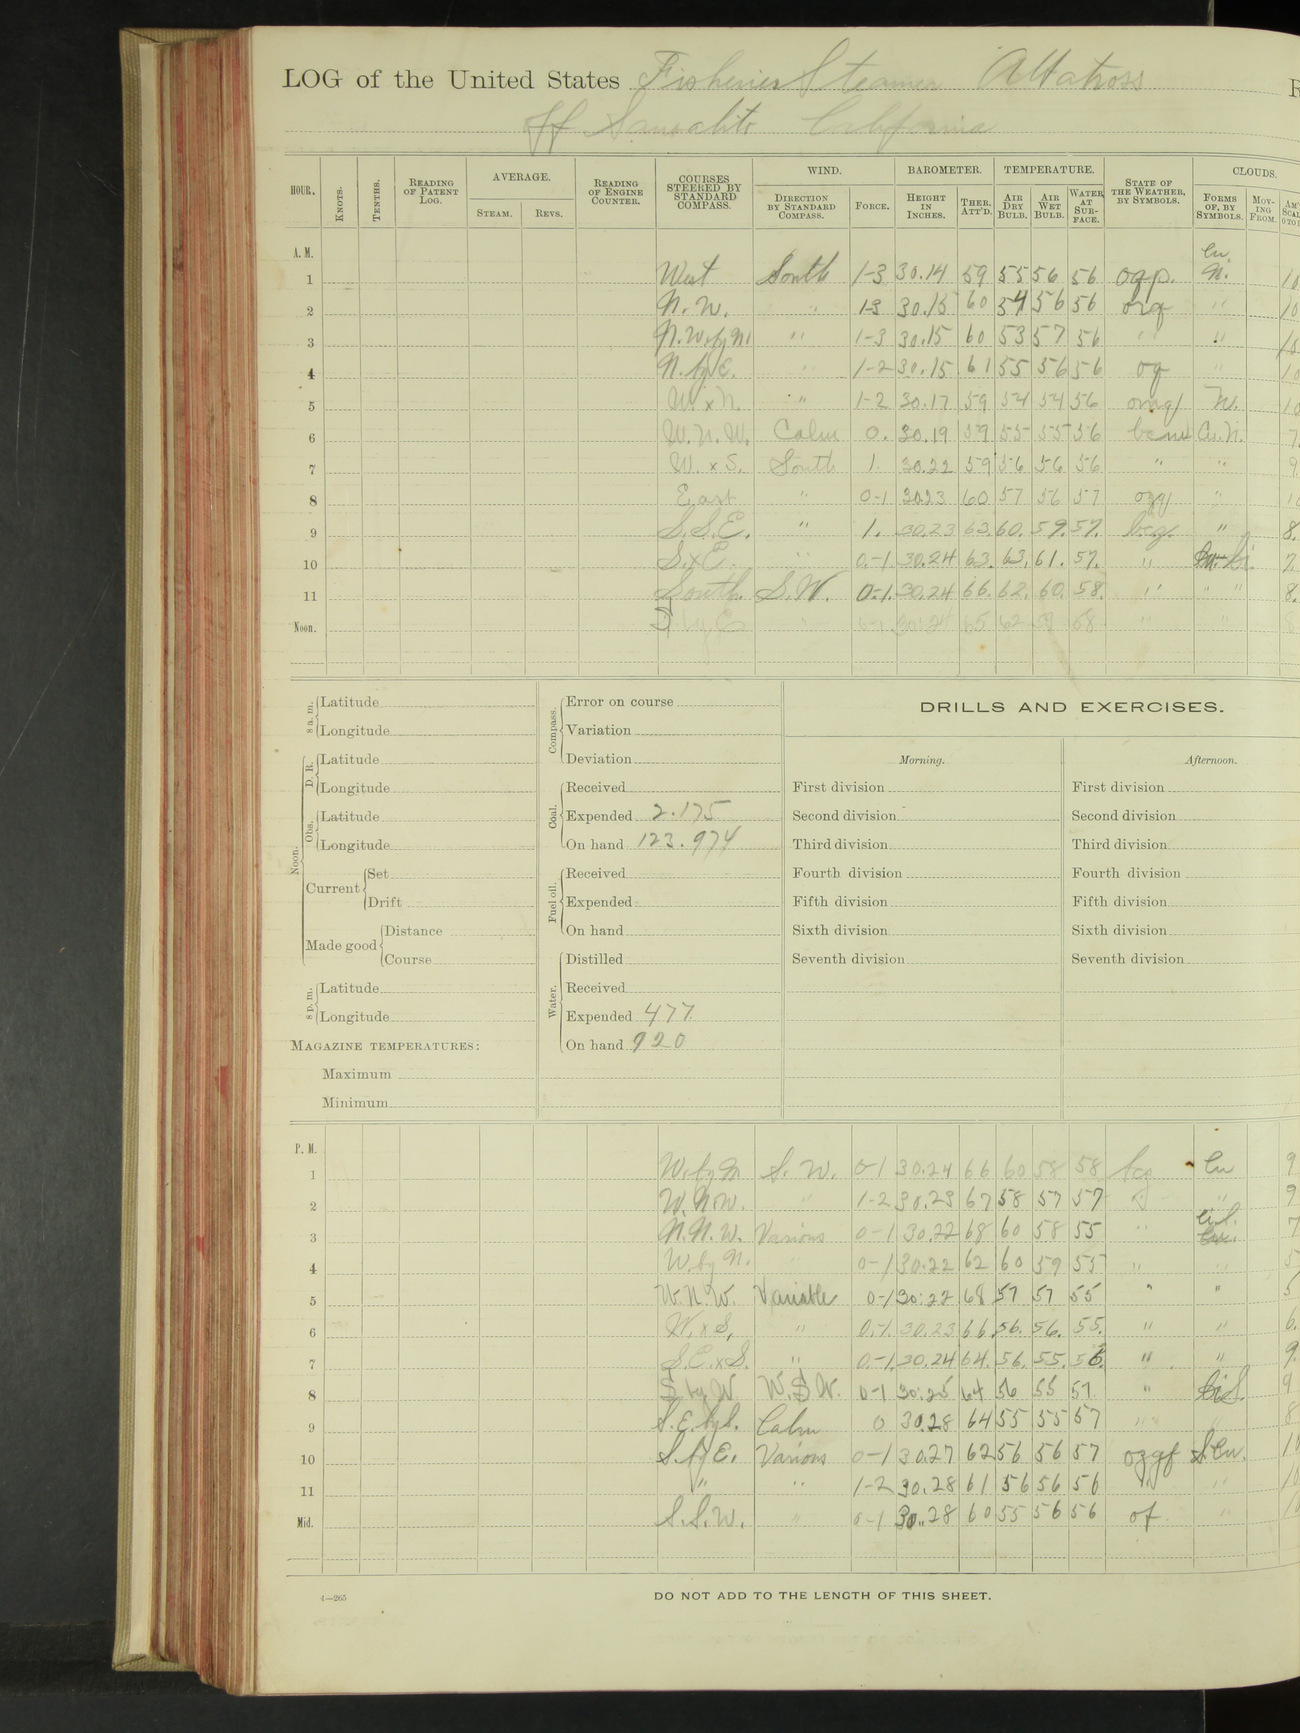 LOG of the United States Fisheries Steamer Albatross R
off Sausalito California
HOUR. KNOTS. TENTHS. READING OF PATENT LOG. AVERAGE. STEAM. REVS. READING OF ENGINE COUNTER. COURSES STEERED BY STANDARD COMPASS. WIND. DIRECTION BY STANDARD COMPASS. FORCE. BAROMETER. HEIGHT IN INCHES. THER. ATT'D. TEMPERATURE. AIR DRY BULB. AIR WET BULB. WATER AT SURFACE. STATE OF THE WEATHER, BY SYMBOLS. CLOUDS. FORMS OF, BY SYMBOLS. MOVING FROM.
A. M.
1 West South 1-3 30.14 59 55 56 56 oqp. Cu. N. 10
2 N. W. " 1-3 30.15 60 54 56 56 orq " 10
3 N.W. by N. " 1-3 30.15 60 53 57 56 " " 10
4 N. by E. " 1-2 30.15 61 55 56 56 oq " 10
5 W. x N. " 1-2 30.17 59 54 54 56 omq N. 10
6 W. N. W. Calm 0. 30.19 59 55 55 56 Cu. N. 7
7 W. x S. South 1. 30.22 59 56 56 56 " " 9
8 East " 0-1 30.23 60 57 56 57 ozq "
9 S. S. E. " 1. 30.23 63. 60. 59. 57. bcz. " 8.
10 S. x E. " 0.-1. 30.24 63. 63. 61. 57. " Ci. 7.
11 South. S. W. 0.-1. 30.24 66. 62. 60. 58. " " " 8.
Noon. S by E " 0-1 30.24 65 62 58 " " 8
8 a. m. Latitude
Longitude
Noon. D. R. Latitude
Longitude
Obs. Latitude
Longitude
Current Set
Drift
Made good Distance
Course
8 p. m. Latitude
Longitude
MAGAZINE TEMPERATURES:
Maximum
Minimum
Compass. Error on course
Variation
Deviation
Coal. Received
Expended 2.175
On hand 123.974
Fuel oil. Received
Expended
On hand
Water. Distilled
Received
Expended 477
On hand 920
DRILLS AND EXERCISES.
Morning.
First division
Second division
Third division
Fourth division
Fifth division
Sixth division
Seventh division
Afternoon.
First division
Second division
Third division
Fourth division
Fifth division
Sixth division
Seventh division
P. M.
1 W. by N S. W. 0-1 30.24 66 60 58 58 bcz Cu 9
2 W. N. W. " 1-2 30.23 67 58 57 57 " " 9
3 N. N. W. Various 0-1 30.22 68 60 58 55 " Ci. S. 7
4 W. by N. 0-1 30.22 62 60 59 55 " " 5
5 W. N. W. Variable 0-1 30.22 68 57 57 55 " " 5
6 W. x S. " 0.-1. 30.23 66. 56. 56. 55. " " 6.
7 S. E. x S. " 0.-1. 30.24 64. 56. 55. 56. " " 9.
8 S by W W. S W. 0-1 30.25 64 56 55 57 " Ci S. 9
9 S. E. by S. Calm 0 30.28 64 55 55 57 " " 8
10 S. by E. Various 0-1 30.27 62 56 56 57 ozqf S. Cu. 10
11 " " 1-2 30.28 61 56 56 56 " " 10
Mid. S. S. W. " 0-1 30.28 60 55 56 56 of " 10
4—265
DO NOT ADD TO THE LENGTH OF THIS SHEET.